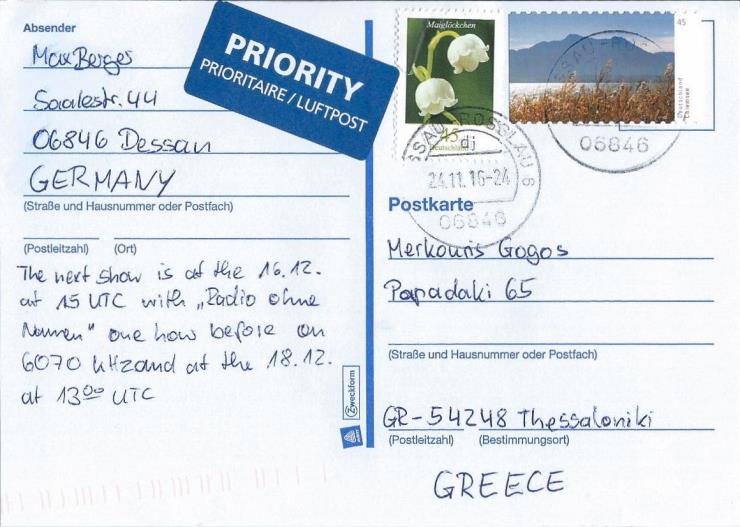 Absender
Max Berger
Saalestr. 44
06846 Dessau
GERMANY
(Straße und Hausnummer oder Postfach)
(Postleitzahl) (Ort)
The next show is at the 16.12.
at 15 UTC with „Radio ohne
Namen" one how before on
6070 kHz and at the 18.12.
at 13⁰⁰ UTC
PRIORITY
PRIORITAIRE / LUFTPOST
Maiglöckchen
45
Deutschland
45
Deutschland
Chiemsee
DESSAU-ROSSLAU 6
dj
24.11.16-24
06846
06846
Postkarte
Merkouris Gogos
Papadaki 65
(Straße und Hausnummer oder Postfach)
GR-54248 Thessaloniki
(Postleitzahl) (Bestimmungsort)
GREECE
Zweckform
AVERY